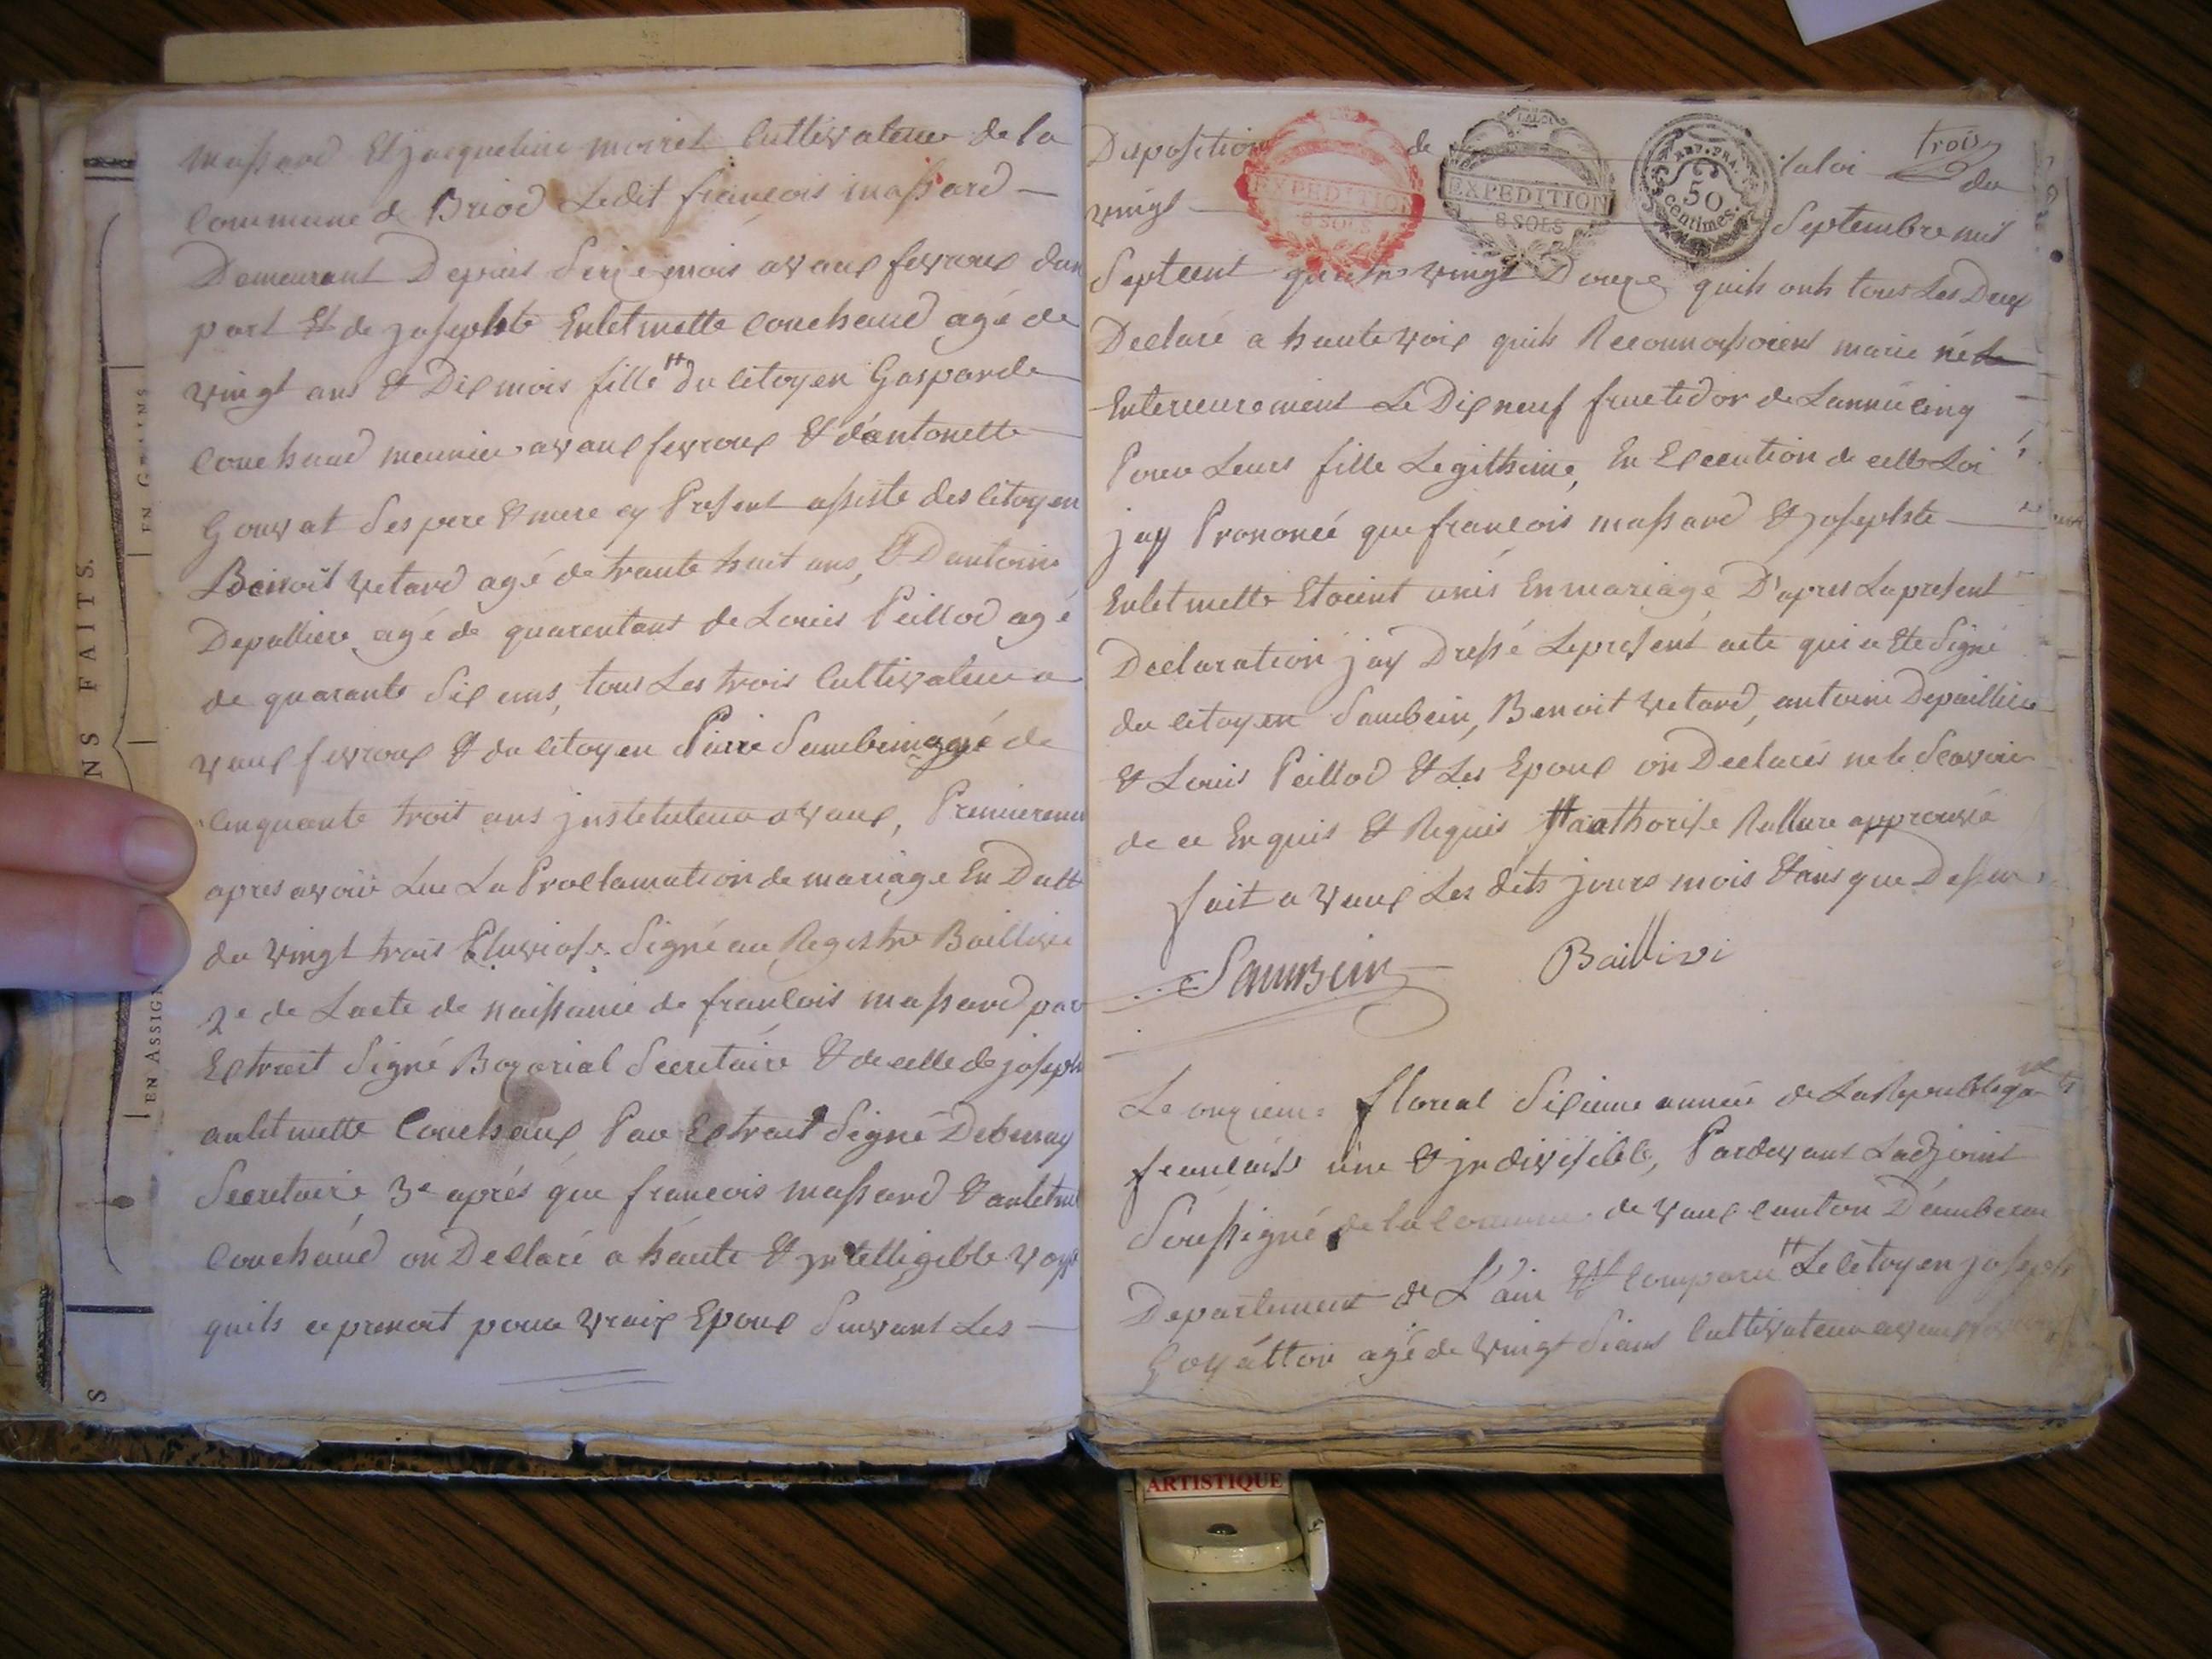 massard Et jacqueline moiret Cultivateur de la
Commune de Briod Ledit francois massard
Demeurant Depuis Seize mois a vaux fevroux dune
part Et de josephte Enletmette Couchaud agé de
vingt ans Et Dix mois fille du Citoyen Gasparde
Couchaud meunier a vaux fevroux Et d'antonette
Gouvat Ses pere Et mere cy Present assisté des Citoyen
Benoit vetard agé de trante huit ans, Et D antoine
Depalliere agé de quarentans de Louis Peillod agé
de quarante Six ans, tous Les trois Cultivateur a
vaux fevroux Et du Citoyen Pierre Saumbein agé de
Cinquante troit ans jnstituteur a vaux, Premierem
apres avoir Lue La Proclamation de mariage En Datte
du vingt trois Pluviose Signé au Registre Baillivi
2e de Lacte de naissance de francois massard par
Extrait Signé Bozorial Secretaire Et de celle de joseph
anletmette Couchaux Par Extrait Signé Debenay
Secretaire 3e aprés que francois massard Et anletme
Couchaud on Declaré a haute Et jntelligible voye
quils ce prenoit pour vraix Epoux Suivant Les
Disposition de la loi trois du
vingt Septembre mil
EXPEDITION
8 SOLS
EXPEDITION
8 SOLS
REP. FRA.
50
centimes.
Septcent quatre vingt Douze quils onts tous Les Deux
Declaré a haute voix quils Reconnoissoient marie née
Enterieurement Le Dix neuf fructidor de Lannée cinq
Pour Leurs fille Legithime, En Execution de cette Loi
jay Prononcé que francois massard Et josephte
Enletmette Etoient unis En mariage D'apres La present
Declaration jay Dressé Le present acte qui a Ete Signé
du Citoyen Saumbein, Benoit vetard, antoine Depailliere
Et Louis Peillod Et Les Epoux on Declarés ne le Scavoir
de ce Enquis Et Requis authorise Rallure approuvée
fait a vaux Les dits jours mois Et ans que Dessus
Saumbein Baillivi
Le onzieme floreal Sixieme année de La Republique
francaise une Et jndivisible, Pardevant Ladjoint
Soussigné de la Commune de vaux canton D'amberieu
Departement de L'ain Est Comparu Le Citoyen joseph
agé de vingt Cultivateur a vaux
N S F A I T S.
EN ASSIGN
S
ARTISTIQUE